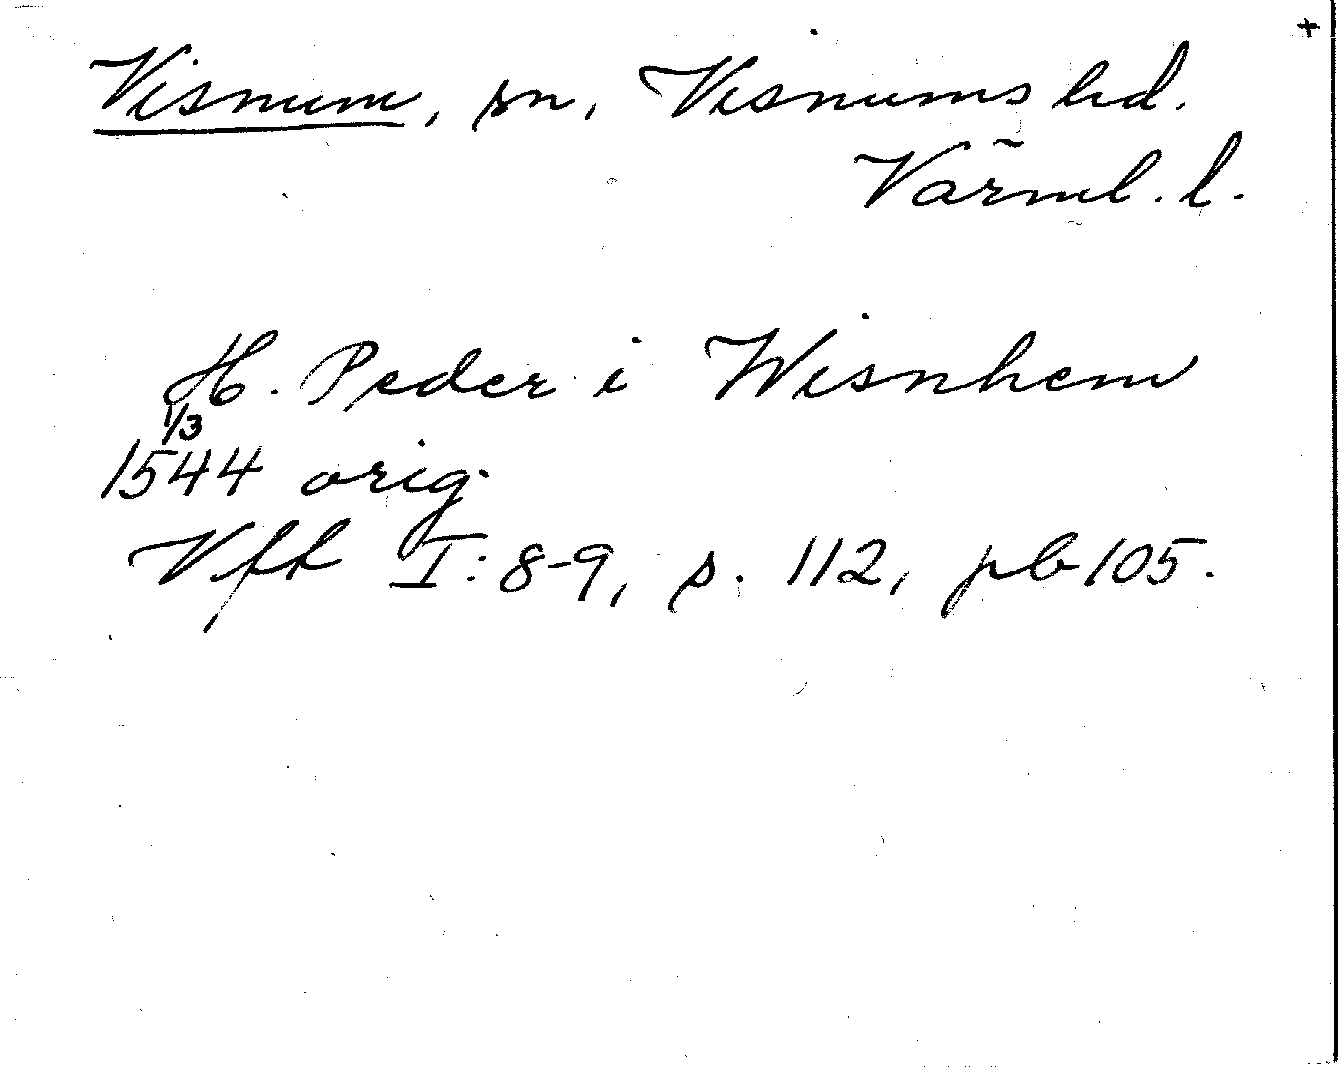 +
Visnum, sn, Visnums hd.
Värml. l.
H. Peder i Wisnhem
1/3
1544 orig.
Vfh I: 8-9, s. 112, pb 105.